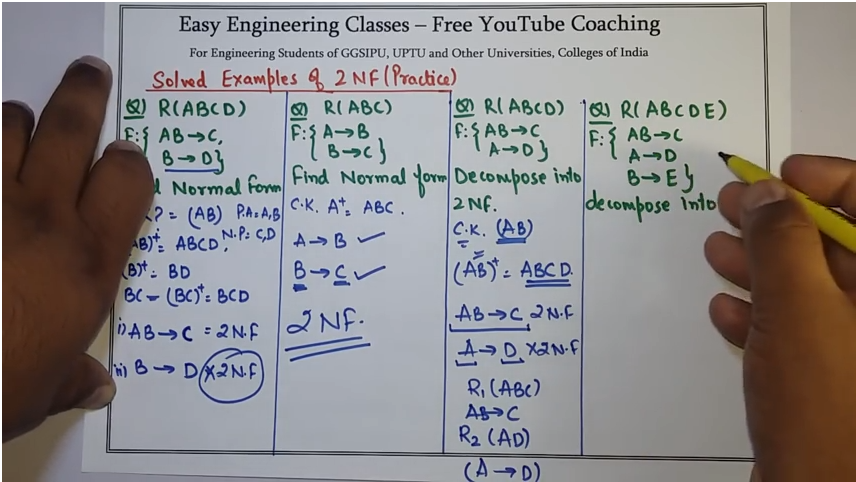 Easy Engineering Classes – Free YouTube Coaching
For Engineering Students of GGSIPU, UPTU and Other Universities, Colleges of India
Solved Examples of 2NF (Practice)
Q) R(ABCD)
F:{ AB→C,
B→D}
Normal form
= (AB) P.A=A,B
N.P=C,D
AB)+= ABCD
(B)+= BD
BC = (BC)+= BCD
i) AB→C = 2N.F
ii) B → D ×2N.F
Q) R(ABC)
F:{ A→B
B→C}
Find Normal form
C.K. A+= ABC.
A→B ✓
B→C ✓
2NF.
Q) R(ABCD)
F:{ AB→C
A→D}
Decompose into
2NF.
C.K. (AB)
(AB)+= ABCD.
AB→C 2N.F
A→D ×2N.F
R1(ABC)
AB→C
R2(AD)
(A→D)
Q) R(ABCDE)
F:{ AB→C
A→D
B→E}
decompose into